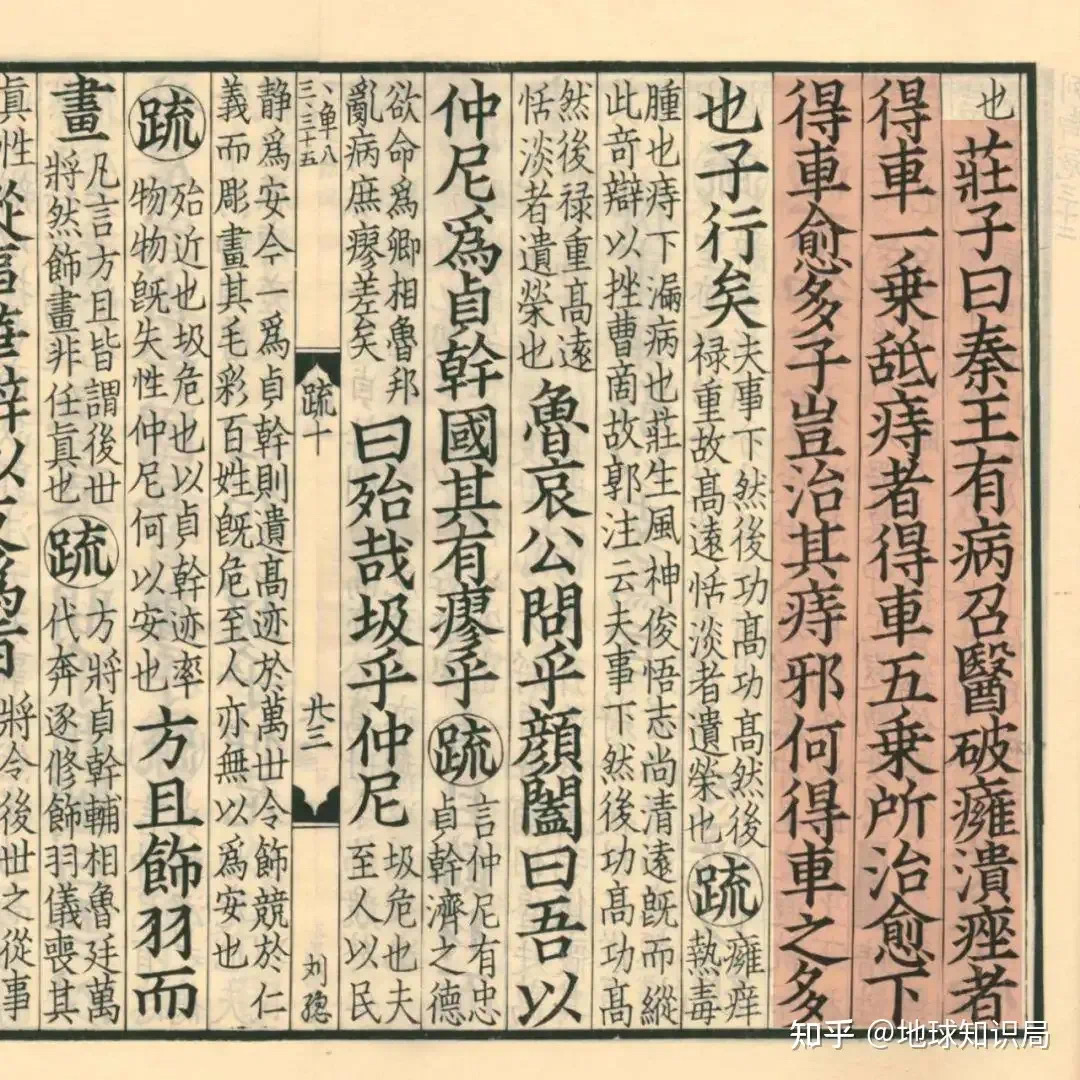 也莊子曰秦王有病召醫破癰潰痤者
得車一乗舐痔者得車五乗所治愈下
得車愈多子豈治其痔邪何得車之多
也子行矣
夫事下然後功髙功髙然後
禄重故髙遠恬淡者遺榮也
疏
癰痒
熱毒
腫也痔下漏病也莊生風神俊悟志尚清遠旣而縱
此奇辯以挫曹商故郭注云夫事下然後功髙功髙
然後禄重髙遠
恬淡者遺榮也
魯哀公問乎顔闔曰吾以
仲尼爲貞幹國其有瘳乎
疏
言仲尼有忠
貞幹濟之德
欲命爲卿相魯邦
亂病庶瘳差矣
曰殆哉圾乎仲尼
圾危也夫
至人以民
三·三十五
疏十
廿三
刘聪
静爲安今一爲貞幹則遺髙迹於萬世令飾競於仁
義而彫畫其毛彩百姓旣危至人亦無以爲安也
疏
殆近也圾危也以貞幹迹率
物物旣失性仲尼何以安也
方且飾羽而
畫
凡言方且皆謂後世
將然飾畫非任真也
疏
方將貞幹輔相魯廷萬
代奔逐修飾羽儀喪其
真性
將令後世之從事
知乎 @地球知识局